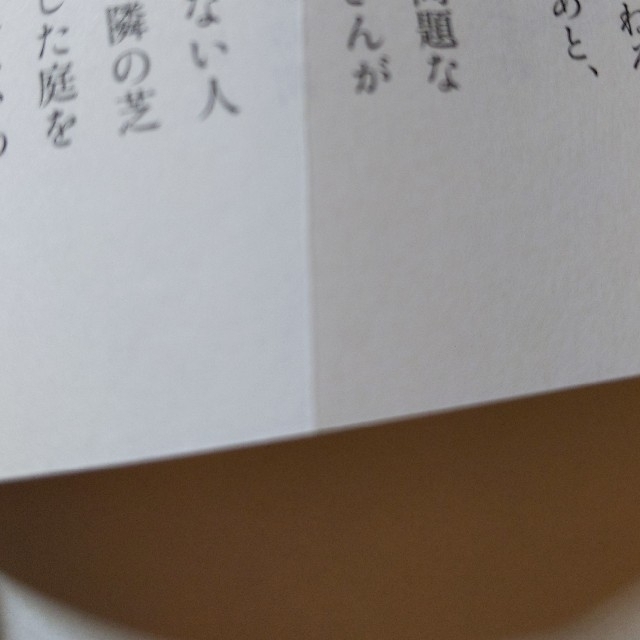 あと、
題な
んが
ない人
隣の芝
した庭を